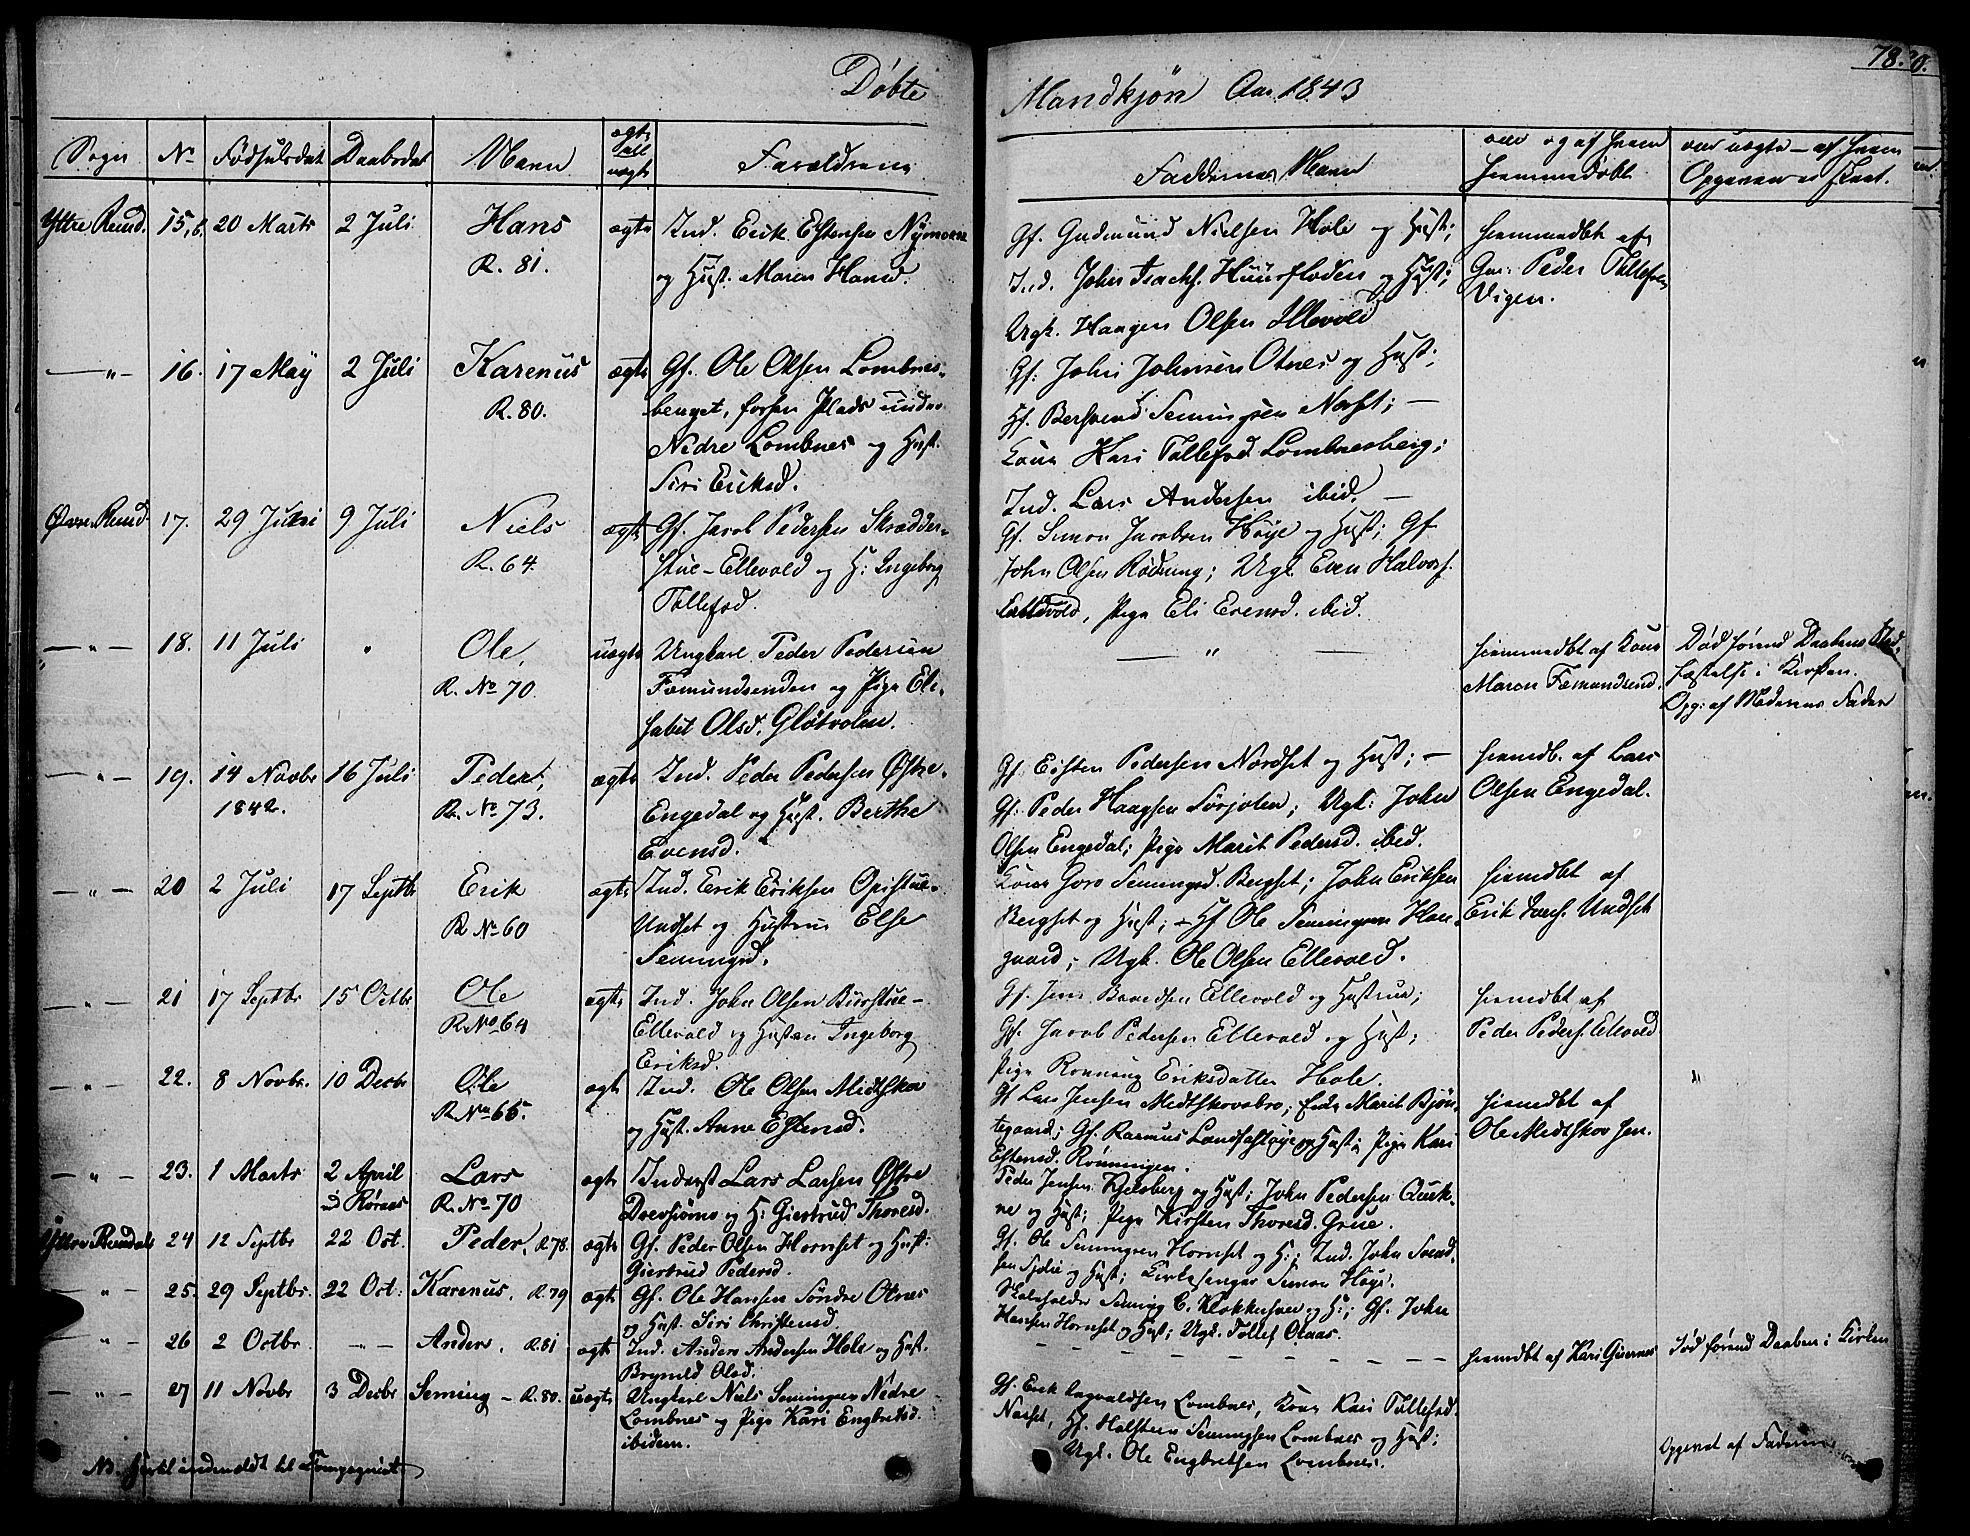 Døbte
Mandkjøn Aar 1843
78.
Sogn No Fødselsdat Daabsdat Navn ægte eller uægte Forældrene
Faddernes Navn
over og af hvem hjemmedøbt
Opgaven er skeet.
Yttre Rend. 15, b. 20 Marts 2 Juli Hans ægte Ind. Erik Estensen Nymoene
R. 81. og Hust. Maren Hansd.
Gf. Gudmund Nielsen Hole og Hust;
Ind. John Isachs. Huusfloden og Hust;
Ugk. Haagen Olsen Illevold
hiemmedbt af
Gm: Peder Tollefsen
Vigen.
—"— 16. 17 May 2 Juli Karenus ægte Gf. Ole Olsen Lombnes-
R. 80. berget, forhen Plads under
Nedre Lombnes og Hust.
Siri Eriksd.
Gf. John Johnsen Otnes og Hust;
Gf. Bersvend Semingsen Næsset; —
Kone Kari Tollefsd Lombnesberg;
Ind. Lars Andersen ibid. —
Øvre Rend. 17. 29 Juni 9 Juli Niels ægte Gf. Jacob Pedersen Skrædder-
R. 64 stue-Ellevold og H: Ingeborg
Tollefsd.
Gf. Simon Jacobsen Høye og Hust; Gf
John Olsen Rødsung; Ugk Even Halvors.
Ellevold, Pige Eli Evensd. ibid.
—"— 18. 11 Juli " Ole, uægte Ungkarl Peder Pedersen
R. No 70. Fæmundsenden og Pige Eli-
sabet Olsd. Gløtvolen.
— " —
hiemmedbt af Kone
Maren Fæmundsend.
Død førend Daabens Stad-
fæstelse i Kirken.
Opg: af Moderens Fader
—"— 19. 14 Novbr 16 Juli Peder, ægte Ind. Peder Pedersen Østre-
1842. R. No 73. Engedal og Hust. Berthe
Evensd.
Gf. Eisten Pedersen Nordset og Hust; —
Gf: Peder Haagsen Sørjolen; Ugk: John
Olsen Engedal; Pige Marit Pedersd. ibid.
hiemdb. af Lars
Olsen Engedal.
—"— 20 2 Juli 17 Septbr Erik ægte Ind. Erik Eriksen Opistue-
R No 60 Undset og Hustrue Else
Semingsd.
Kone Goro Semingsd. Bergset; John Eriksen
Bergset og Hust; — Gf Ole Semingsen Haa-
gaard; Ugk. Ole Olsen Ellevold.
hiemdbt af
Erik Undset
—"— 21 17 Septbr 15 Octbr Ole ægte Ind. John Olsen Burstue-
R No 64 Ellevold og Hustru Ingeborg
Eriksd.
Gf. Jens Baardsen Ellevold og Hustrue;
Gf. Jacob Pedersen Ellevold og Hust;
Pige Rønnaug Eriksdatter Hole.
hiemdbt af
Peder Peders. Ellevold
—"— 22. 8 Novbr. 10 Decbr Ole ægte Ind. Ole Olsen Midtskov
R No 65. og Hust. Anne Estensd.
Gf Lars Jensen Midtskovsbro; Enke Marit Bjøn-
tegaard; Gf. Rasmus Landsastøye og Hust; Pige Kari
Estensd. Rønningen.
hiemdbt af
Ole Midtskov sen.
—"— 23. 1 Marts 2 April Lars ægte Inderst Lars Larsen Østre
i Røraas R. No 70 Drevsiømo og H: Giertrud Thoresd.
Peder Jensen Kjelsberg og Hust; John Pedersen Quik-
ne og Hust; Pige Kirsten Thoresd. Grue.
Yttre Rendal 24 12 Septbr 22 Oct. Peder, R. 78. ægte Gf. Peder Olsen Hornset og Hust:
Giertrud Pedersd.
Gf. Ole Semingsen Hornset og H:; Ind. John Svend-
sen Sjølie og Hust; Kirkesanger Simon Høye.
—"— 25. 29 Septbr. 22 Oct: Karenus. R. 79 ægte Gf. Ole Hansen Søndre Otnes
og Hust. Siri Christensd.
Skoleholder Seming C. Klokkerhaen og H:; Gf. John
Hansen Hornset og Hust; Ugk. Tollef Olsen.
—"— 26 2 Octbr. —"— Anders, R. 81 ægte Ind. Anders Andersen Hole og Hust.
Bryneld Olsd.
hiemdbt af Kari Guernes
Død førend Daaben i Kirken
—"— 27 11 Novbr 3 Decbr Seming — R. 80. uægte Ungkarl Niels Semingsen Nedre
Lombnes og Pige Kari Engbretsd.
ibidem.
Gf. Erik Lombnes, Kone Kari Tollefsd.
Næsset, Gf. Halsten Semingsen Lombnes og Hust;
Ugk. Ole Engbretsen Lombnes.
Opgivet af Faderen
NB hertil indmeldt til